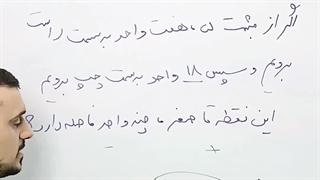 اگر از مثبت ۵، هفت واحد به سمت راست
برویم و سپس ۱۸ واحد به سمت چپ برویم
این نقطه تا صفر، چند واحد فاصله دارد؟
+